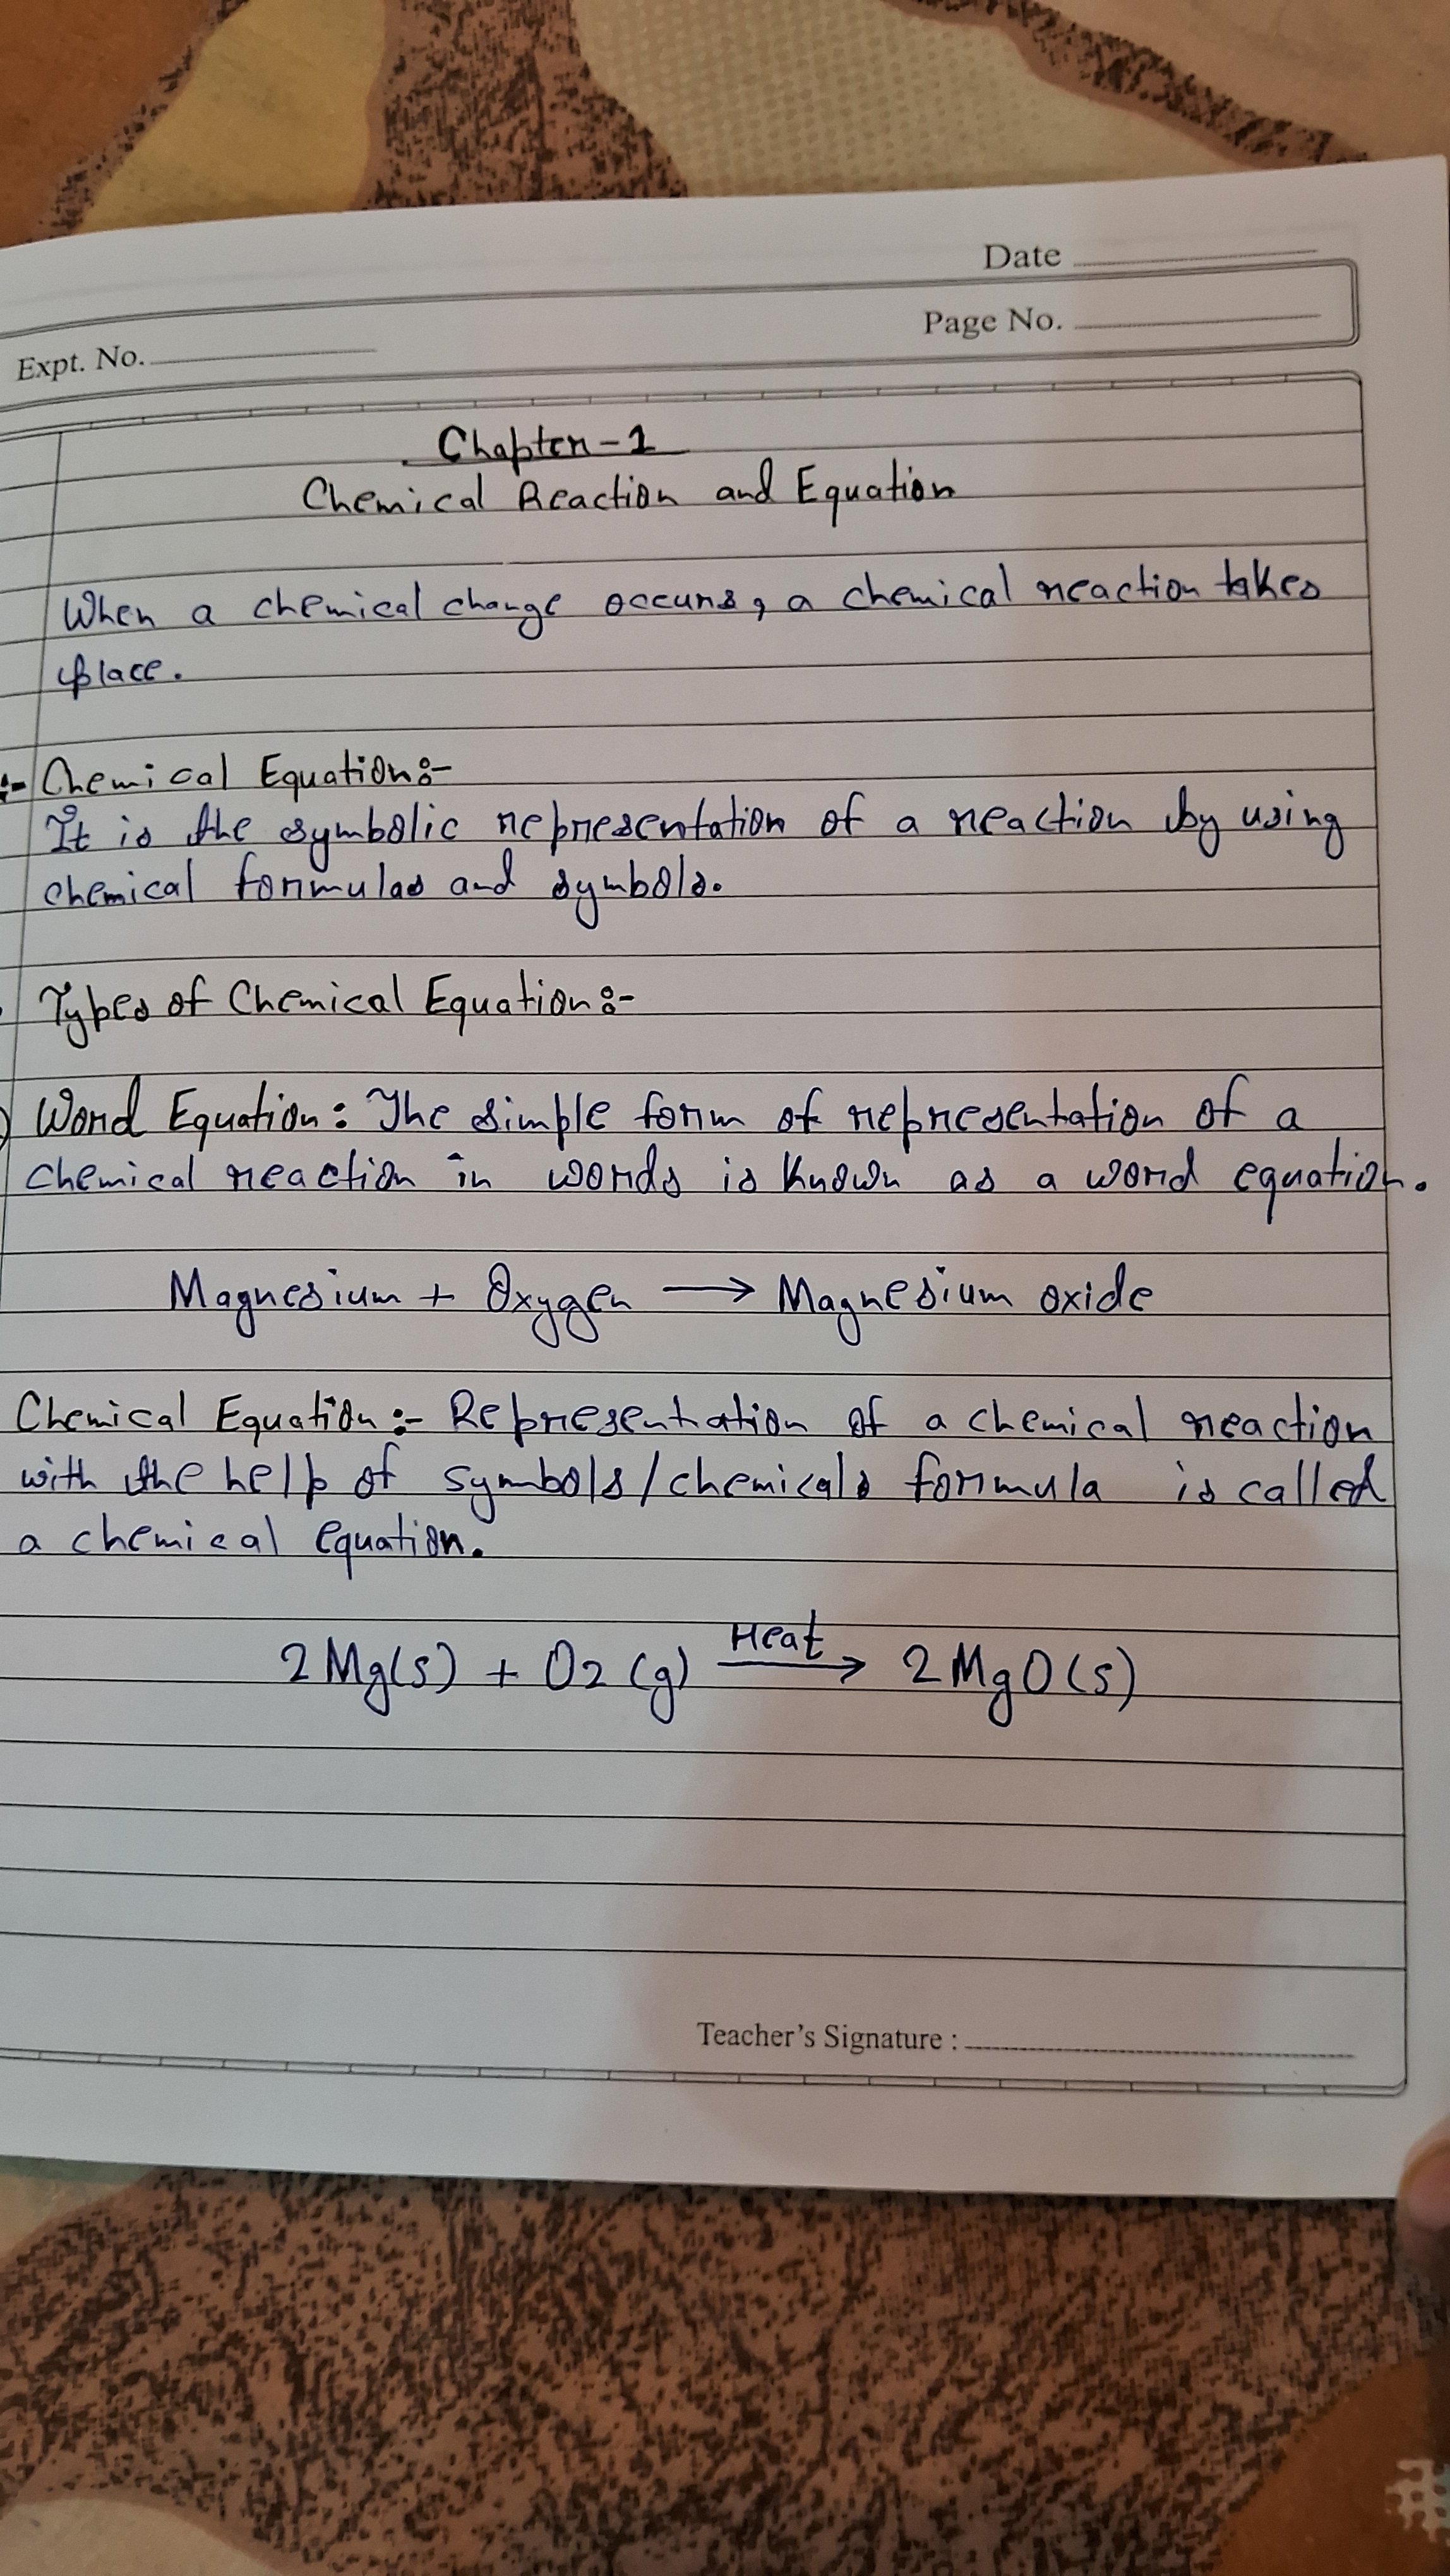 Date
Page No.
Expt. No.
Chapter-1
Chemical Reaction and Equation
When a chemical change occurs, a chemical reaction takes
place.
:- Chemical Equation:-
It is the symbolic representation of a reaction by using
chemical formulas and symbols.
Types of Chemical Equation:-
) Word Equation: The simple form of representation of a
chemical reaction in words is known as a word equation.
Magnesium + Oxygen → Magnesium oxide
Chemical Equation:- Representation of a chemical reaction
with the help of symbols/chemicals formula is called
a chemical equation.
Heat
2Mg(s) + O2 (g) → 2MgO(s)
Teacher's Signature :